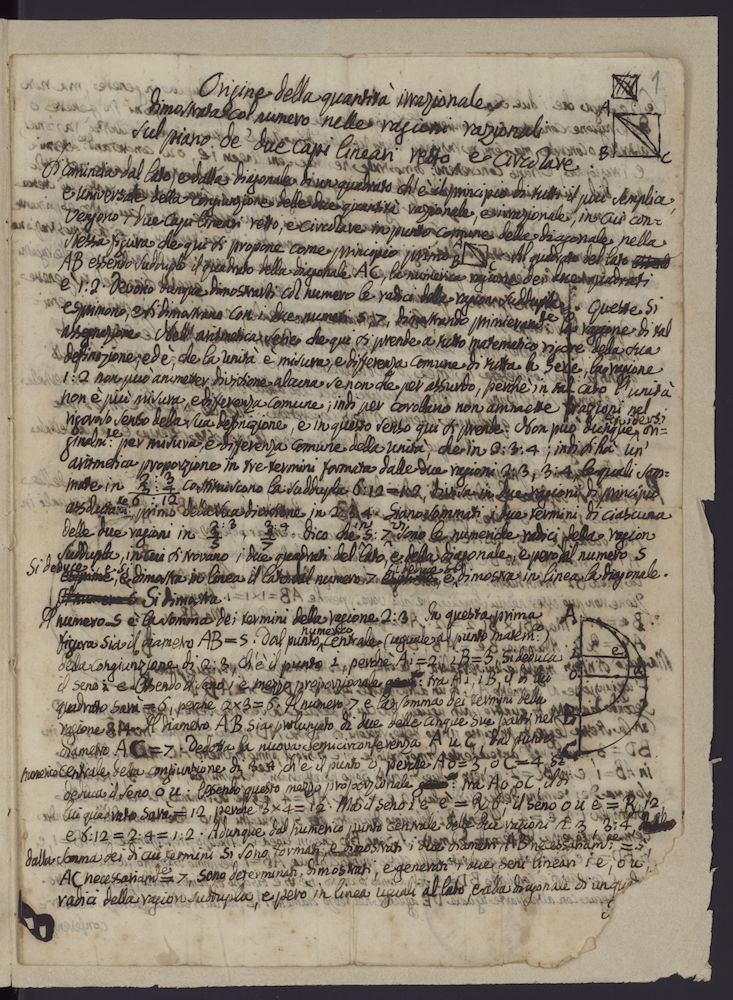 1
Origine della quantità irrazionale
dimostrata col numero nelle ragioni razionali
sul piano de' due Capi lineari retto e circolare
A
B C
Si comincia dal lato, e dalla diagonale di un quadrato ch'è il principio di tutti il più semplice,
e universale della congiunzione delle due quantità razionale, e irrazionale, in cui con=
vengono i due Capi lineari retto, e circolare in punto comune della diagonale nella
stessa figura che qui si propone come principio primo A B C. Il quadrato del lato
AB essendo sudduplo il quadrato della diagonale AC, la numerica ragione dei due quadrati
è 1:2. Devono dunque dimostrarsi col numero le radici della ragion sudduplа. Queste si
esprimono, e si dimostrano con i due numeri 5:7, dimostrando primieramte la ragione di tal
assegnazione. Nell'aritmetica serie che qui si prende a tutto matematico rigore della sua
definizione, ed è, che la unità è misura, e differenza comune di tutta la serie, la ragione
1:2 non può ammetter divisione alcuna se non che per assurdo, perchè in tal caso l'unità
non è più misura, e differenza comune; indi per corollario non ammette frazioni nel
rigoroso senso della sua definizione, e in questo senso qui si prende. Non può dunque dividersi ori=
ginalmte per misura, e differenza comune della unità, che in 2:3:4; indi si ha un'
aritmetica proporzione in tre termini formata dalle due ragioni 2:3, 3:4, le quali som=
mate in 2:3 3:4 6:12 costituiscono la sudduplа 6:12=1:2, divisa in due ragioni di principio
primo della sua divisione in 2:3:4. Siano sommati i due termini di ciascuna
delle due ragioni in 2:3 5, 3:4 7. dico che in 5:7 vi sono le numeriche radici della ragion
sudduplа, in cui si trovano i due quadrati del lato, e della diagonale, e però il numero 5
Si deduce, e si dimostra in linea il lato, dal numero 7 si deduce, e si dimostra in linea la diagonale.
Si dimostra
Il numero 5 è la somma dei termini della ragione 2:3. In questa prima
figura sia il diametro AB=5. Dal punto numerico centrale (uguale al punto matem:)
della congiunzione di 2:3, ch'è il punto i, perchè Ai=2, iB=3, si deduca
il seno i e. Essendo il seno i e mezzo proporzionale tra Ai, iB, il di lui
quadrato sarà =6, perchè 2×3=6. Il numero 7 è la somma dei termini della
ragione 3:4. Il diametro AB sia prolungato di due delle cinque sue parti nel
diametro AC=7. Descritta la nuova semicirconferenza A u C, dal punto
numerico centrale della congiunzione di 3:4 ch'è il punto o, perchè Ao=3, oC=4, si
deduca il seno o u. Essendo questo mezzo proporzionale tra Ao, oC, il di
lui quadrato sarà =12, perchè 3×4=12. Ma il seno i e è = R 6, il seno o u è = R 12,
e 6:12=2:4=1:2. Adunque dal numerico punto centrale delle due ragioni 2:3, 3:4,
dalla somma dei di cui termini si sono formati e dimostrati i due diametri AB necessariamte =5,
AC necessariamte =7, sono determinati, dimostrati, e generati i due seni lineari i e, o u
radici della ragion sudduplа, e però in linea uguali al lato e alla diagonale di un quad